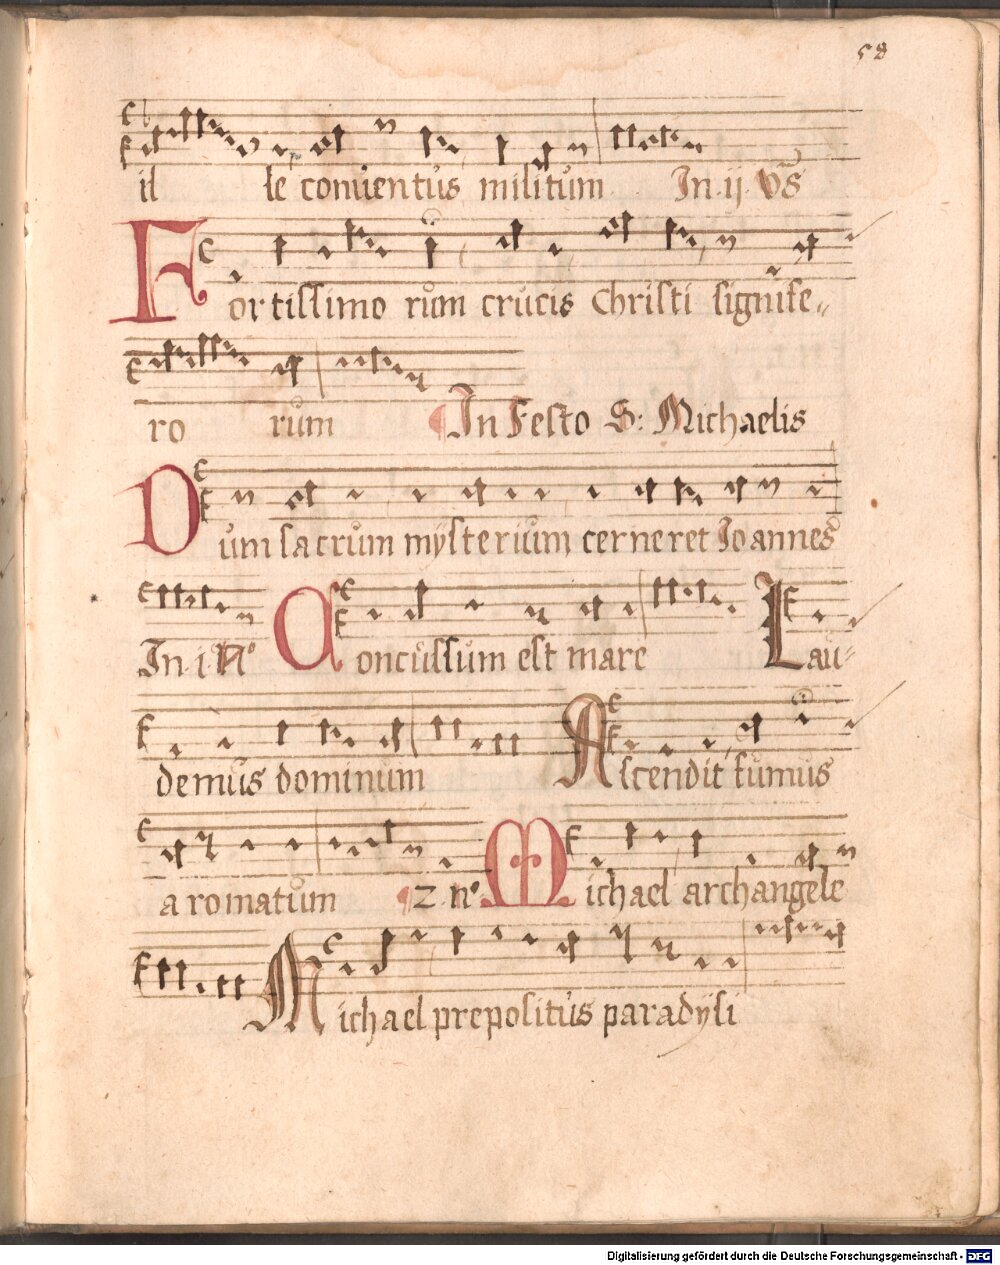 58
il le conuentus militum In ij Vs̃
For tissimo rum crucis Christi signife„
ro rum In Festo S: Michaelis
Dum sacrum mÿsterium cerneret Ioannes
In i N° Concussum est mare Lau-
demus dominum Ascendit fumus
aromatum 2 n° Michael archangele
Michael prepositus paradÿsi
Digitalisierung gefördert durch die Deutsche Forschungsgemeinschaft - DFG